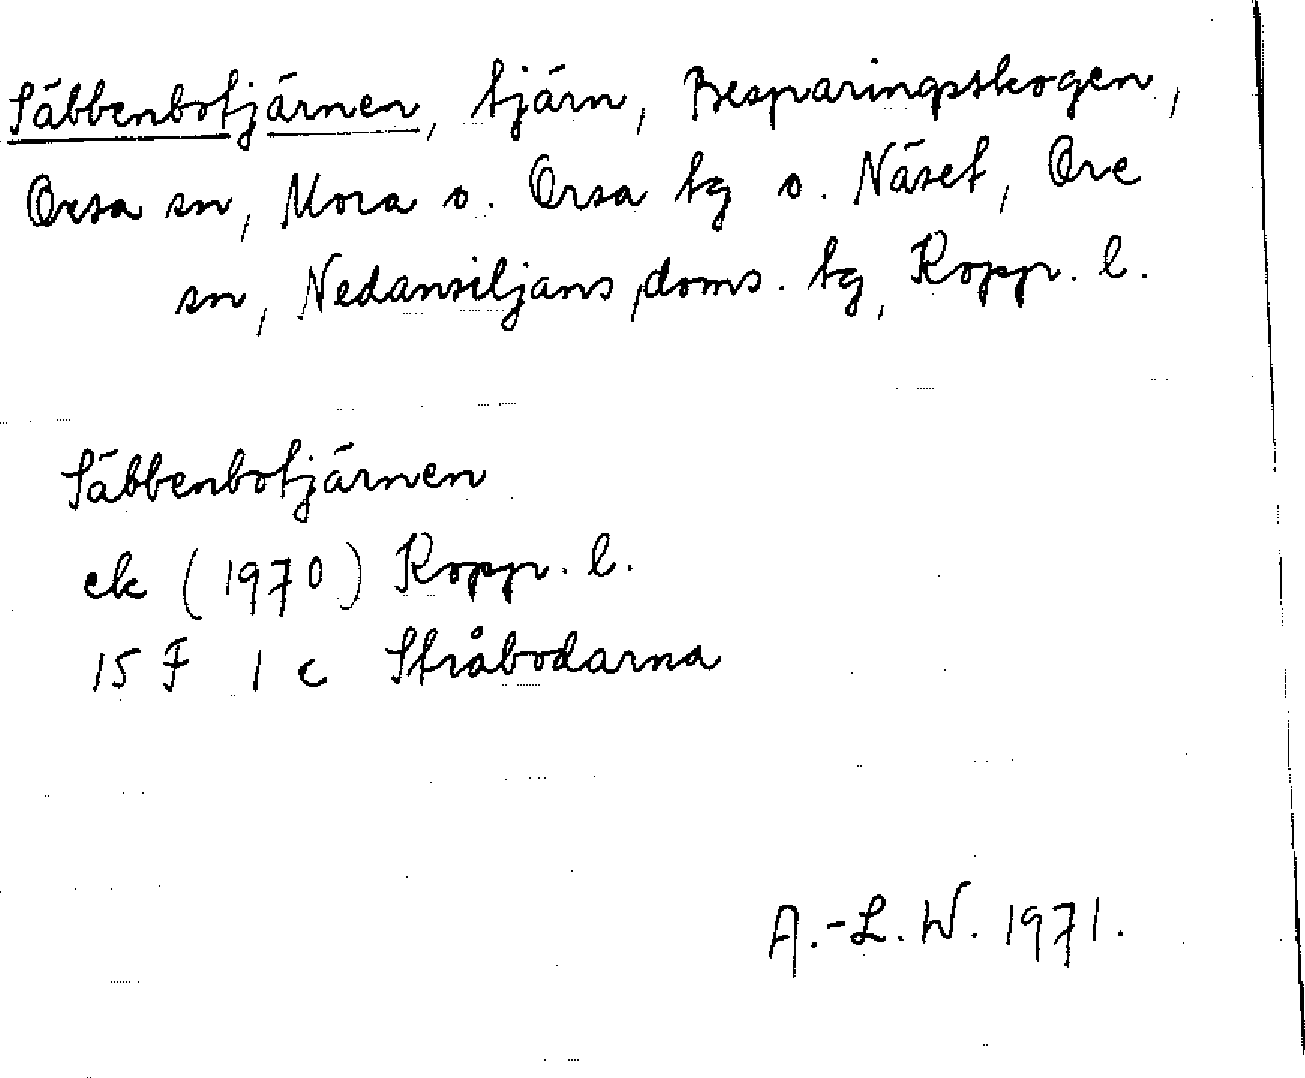 Säbbenbotjärnen, tjärn, Besparingsskogen,
Orsa sn, Mora o. Orsa tg o. Näset, Ore
sn, Nedansiljans doms. tg, Kopp. l.
Säbbenbotjärnen
ek (1970) Kopp. l.
15 F 1 c Stråbodarna
A.-L. W. 1971.